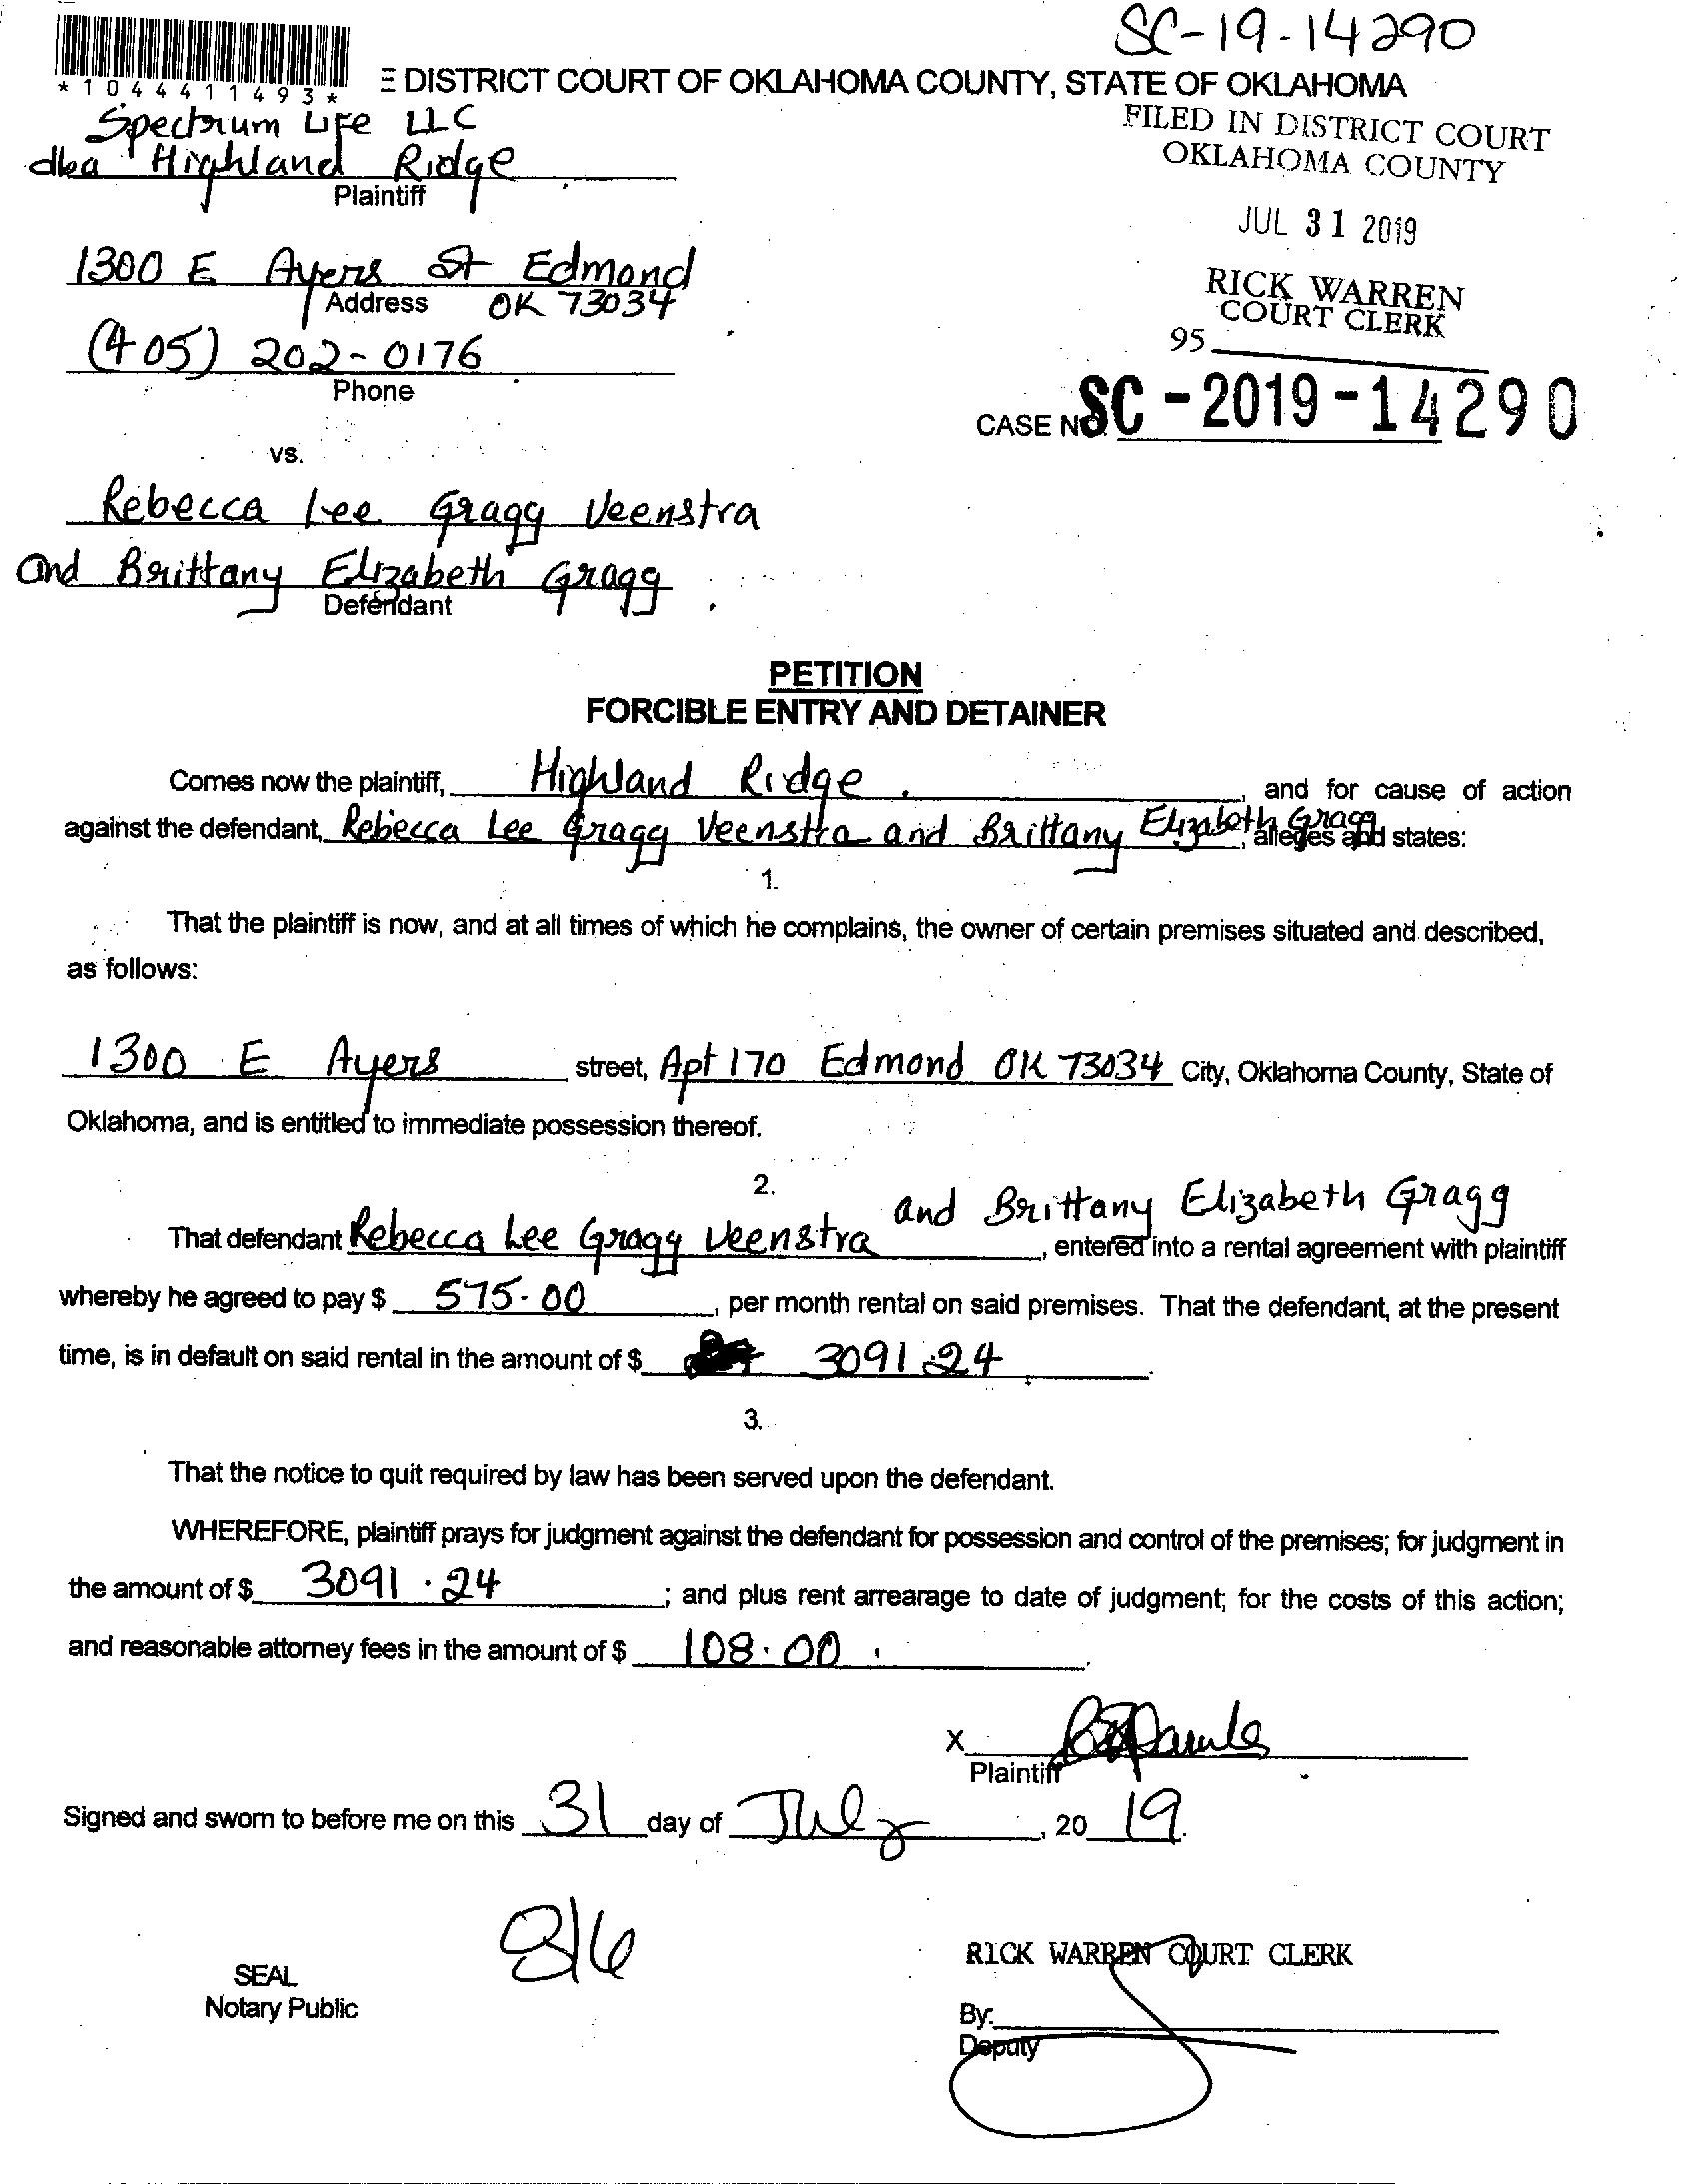 SC-19-14290
*1044411493*
E DISTRICT COURT OF OKLAHOMA COUNTY, STATE OF OKLAHOMA
Spectrum Life LLC
dba Highland Ridge
Plaintiff
FILED IN DISTRICT COURT
OKLAHOMA COUNTY
JUL 31 2019
RICK WARREN
COURT CLERK
95
1300 E Ayers St Edmond
Address OK 73034
(405) 202-0176
Phone
CASE NO. SC-2019-14290
vs.
Rebecca Lee Gragg Veenstra
and Brittany Elizabeth Gragg
Defendant
PETITION
FORCIBLE ENTRY AND DETAINER
Comes now the plaintiff, Highland Ridge, and for cause of action
against the defendant, Rebecca Lee Gragg Veenstra and Brittany Elizabeth Gragg, alleges and states:
1.
That the plaintiff is now, and at all times of which he complains, the owner of certain premises situated and described,
as follows:
1300 E Ayers street, Apt 170 Edmond OK 73034 City, Oklahoma County, State of
Oklahoma, and is entitled to immediate possession thereof.
2.
That defendant Rebecca Lee Gragg Veenstra and Brittany Elizabeth Gragg, entered into a rental agreement with plaintiff
whereby he agreed to pay $ 575.00, per month rental on said premises. That the defendant, at the present
time, is in default on said rental in the amount of $ 3091.24.
3.
That the notice to quit required by law has been served upon the defendant.
WHEREFORE, plaintiff prays for judgment against the defendant for possession and control of the premises; for judgment in
the amount of $ 3091.24; and plus rent arrearage to date of judgment; for the costs of this action;
and reasonable attorney fees in the amount of $ 108.00.
X
Plaintiff
Signed and sworn to before me on this 31 day of July, 2019.
8/6
SEAL
Notary Public
RICK WARREN COURT CLERK
By:
Deputy